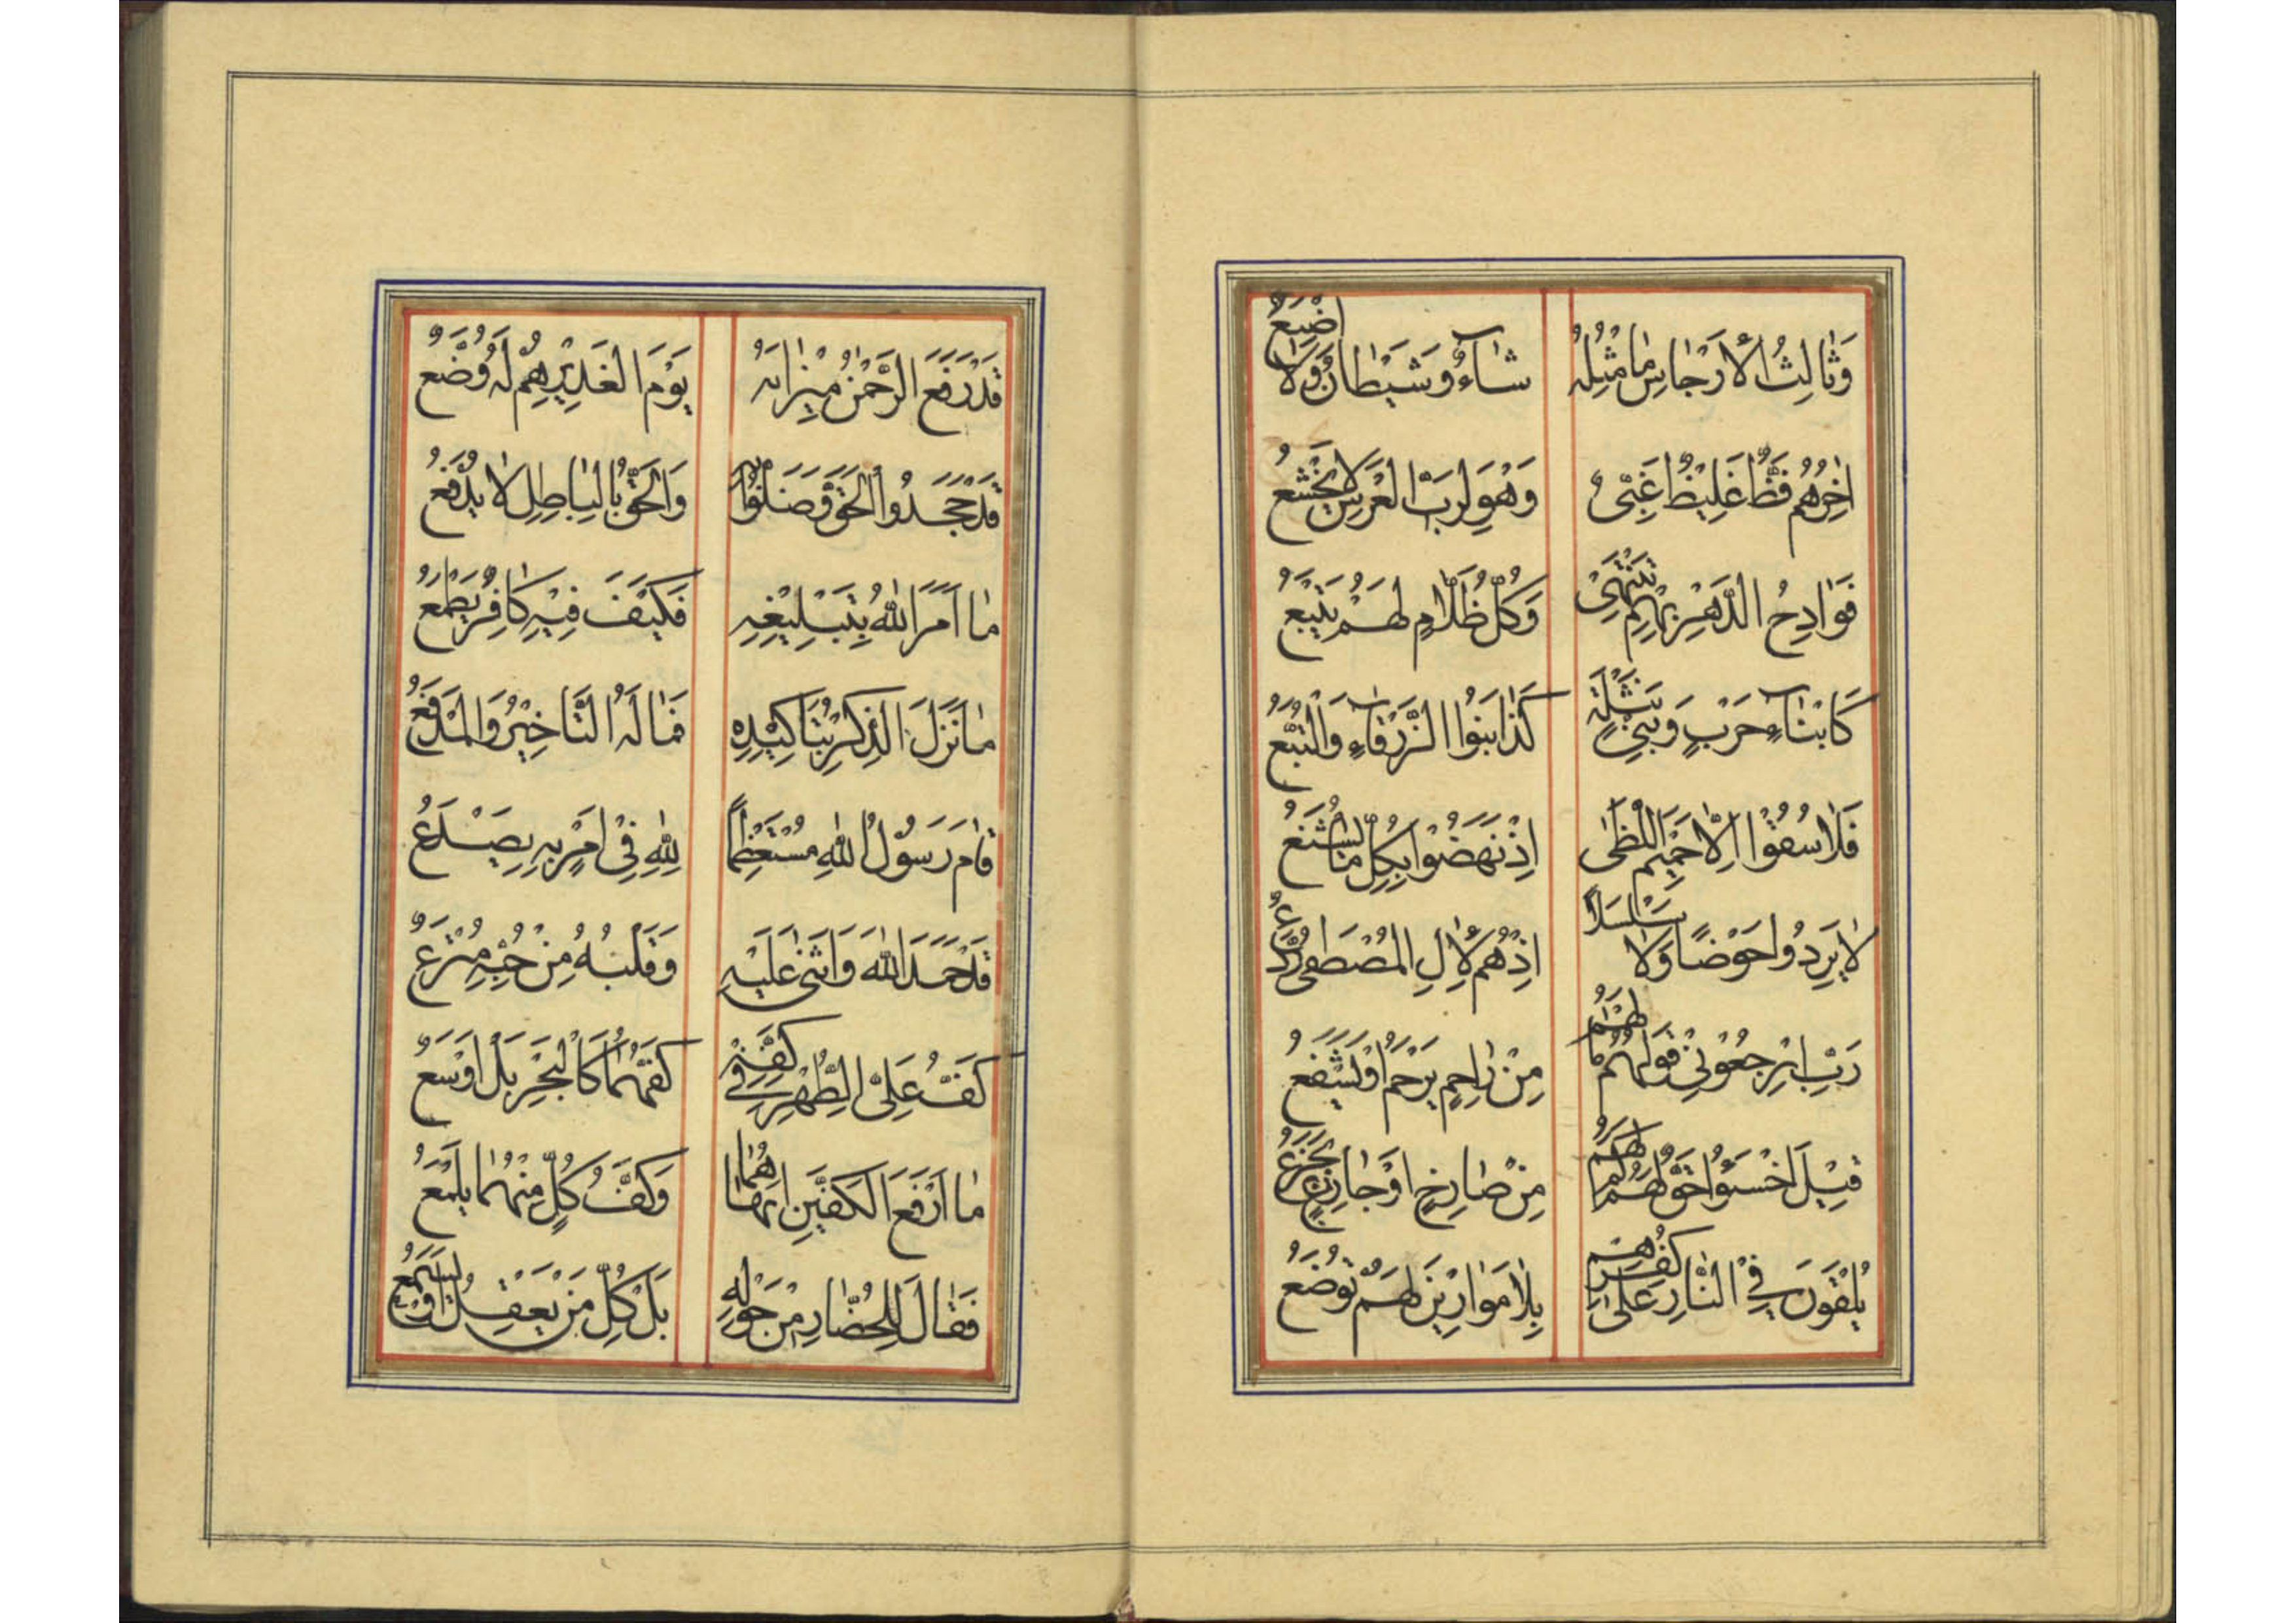 وَثٰالِثُ الْأَرْجٰاسِ مٰا مِثْلُهُ شٰاءٌ وَشَيْطٰانٌ وَلٰا اَضْبَعُ
اٰخِرُهُمْ فَظٌّ غَلِيظٌ غَبِىٌّ وَهْوَ لِرَبِّ الْعَرْشِ لٰا يَخْشَعُ
فَوٰادِحُ الدَّهْرِ بِهِمْ تَنْتَهِىْ وَكُلُّ ظَلّٰامٍ لَهُمْ يَتْبَعُ
كَابْنٰاءِ حَرْبٍ وَبَنِىْ نَثْلَةٍ كَذٰا بَنُوا الزَّرْقٰاءِ وَالتُّبَّعُ
فَلٰا سُقُوْا اِلّٰا حَمِيْمَ اللَّظٰى اِذْ نَهَضُوا بِكُلِّ مٰا يُشْنَعُ
لٰا يَرِدُوا حَوْضًا وَلٰا سَلْسَلًا اِذْ هُمْ لِاٰلِ الْمُصْطَفٰى
رَبِّ ارْجِعُوْنِىْ قَوْلُهُمْ مٰا لَهُمْ مِنْ رٰاحِمٍ يَرْحَمُ اَوْ يَشْفَعُ
قِيْلَ اخْسَئُوْا حَقٌّ لَهُمْ مِنْ صٰارِخٍ اَوْ جٰازِعٍ يَجْزَعُ
يُلْقَوْنَ فِى النّٰارِ عَلٰى كُفْرِهِمْ بِلٰا مَوٰازِيْنَ لَهُمْ تُوْضَعُ
قَدْ رَفَعَ الرَّحْمٰنُ مِيْزٰانَهُ يَوْمَ الْغَدِيْرِ هُمْ لَهُ وُضَّعُ
قَدْ جَحَدُوا الْحَقَّ وَصَدَّقُوْا وَالْحَقُّ بِالْبٰاطِلِ لٰا يُدْفَعُ
مٰا اَمَرَ اللهُ بِتَبْلِيْغِهِ فَكَيْفَ فِيْهِ كٰافِرٌ يَطْمَعُ
مٰا نَزَلَ الذِّكْرُ بِتَاكِيْدِهِ فَمٰا لَهُ التَّاخِيْرُ وَالْمَدْفَعُ
قٰامَ رَسُوْلُ اللهِ مُسْتَعْظِمًا لِلّٰهِ فِىْ اَمْرٍ بِهِ يَصْدَعُ
قَدْ حَمَدَ اللهَ وَاَثْنٰى عَلَيْهِ وَقَلْبُهُ مِنْ حُبِّهِ مُتْرَعٌ
كَفُّ عَلِىِّ الطُّهْرِ فِىْ كَفِّهِ كَفُّهُمٰا كَالْبَحْرِ بَلْ اَوْسَعُ
مٰا اَرْفَعَ الْكَفَّيْنِ اَبْهٰاهُمٰا وَكَفُّ كُلٍّ مِنْهُمٰا يَلْمَعُ
فَقٰالَ لِلْحُضّٰارِ مِنْ حَوْلِهِ بَلْ كُلِّ مَنْ يَعْقِلُ اَوْ يَسْمَعُ